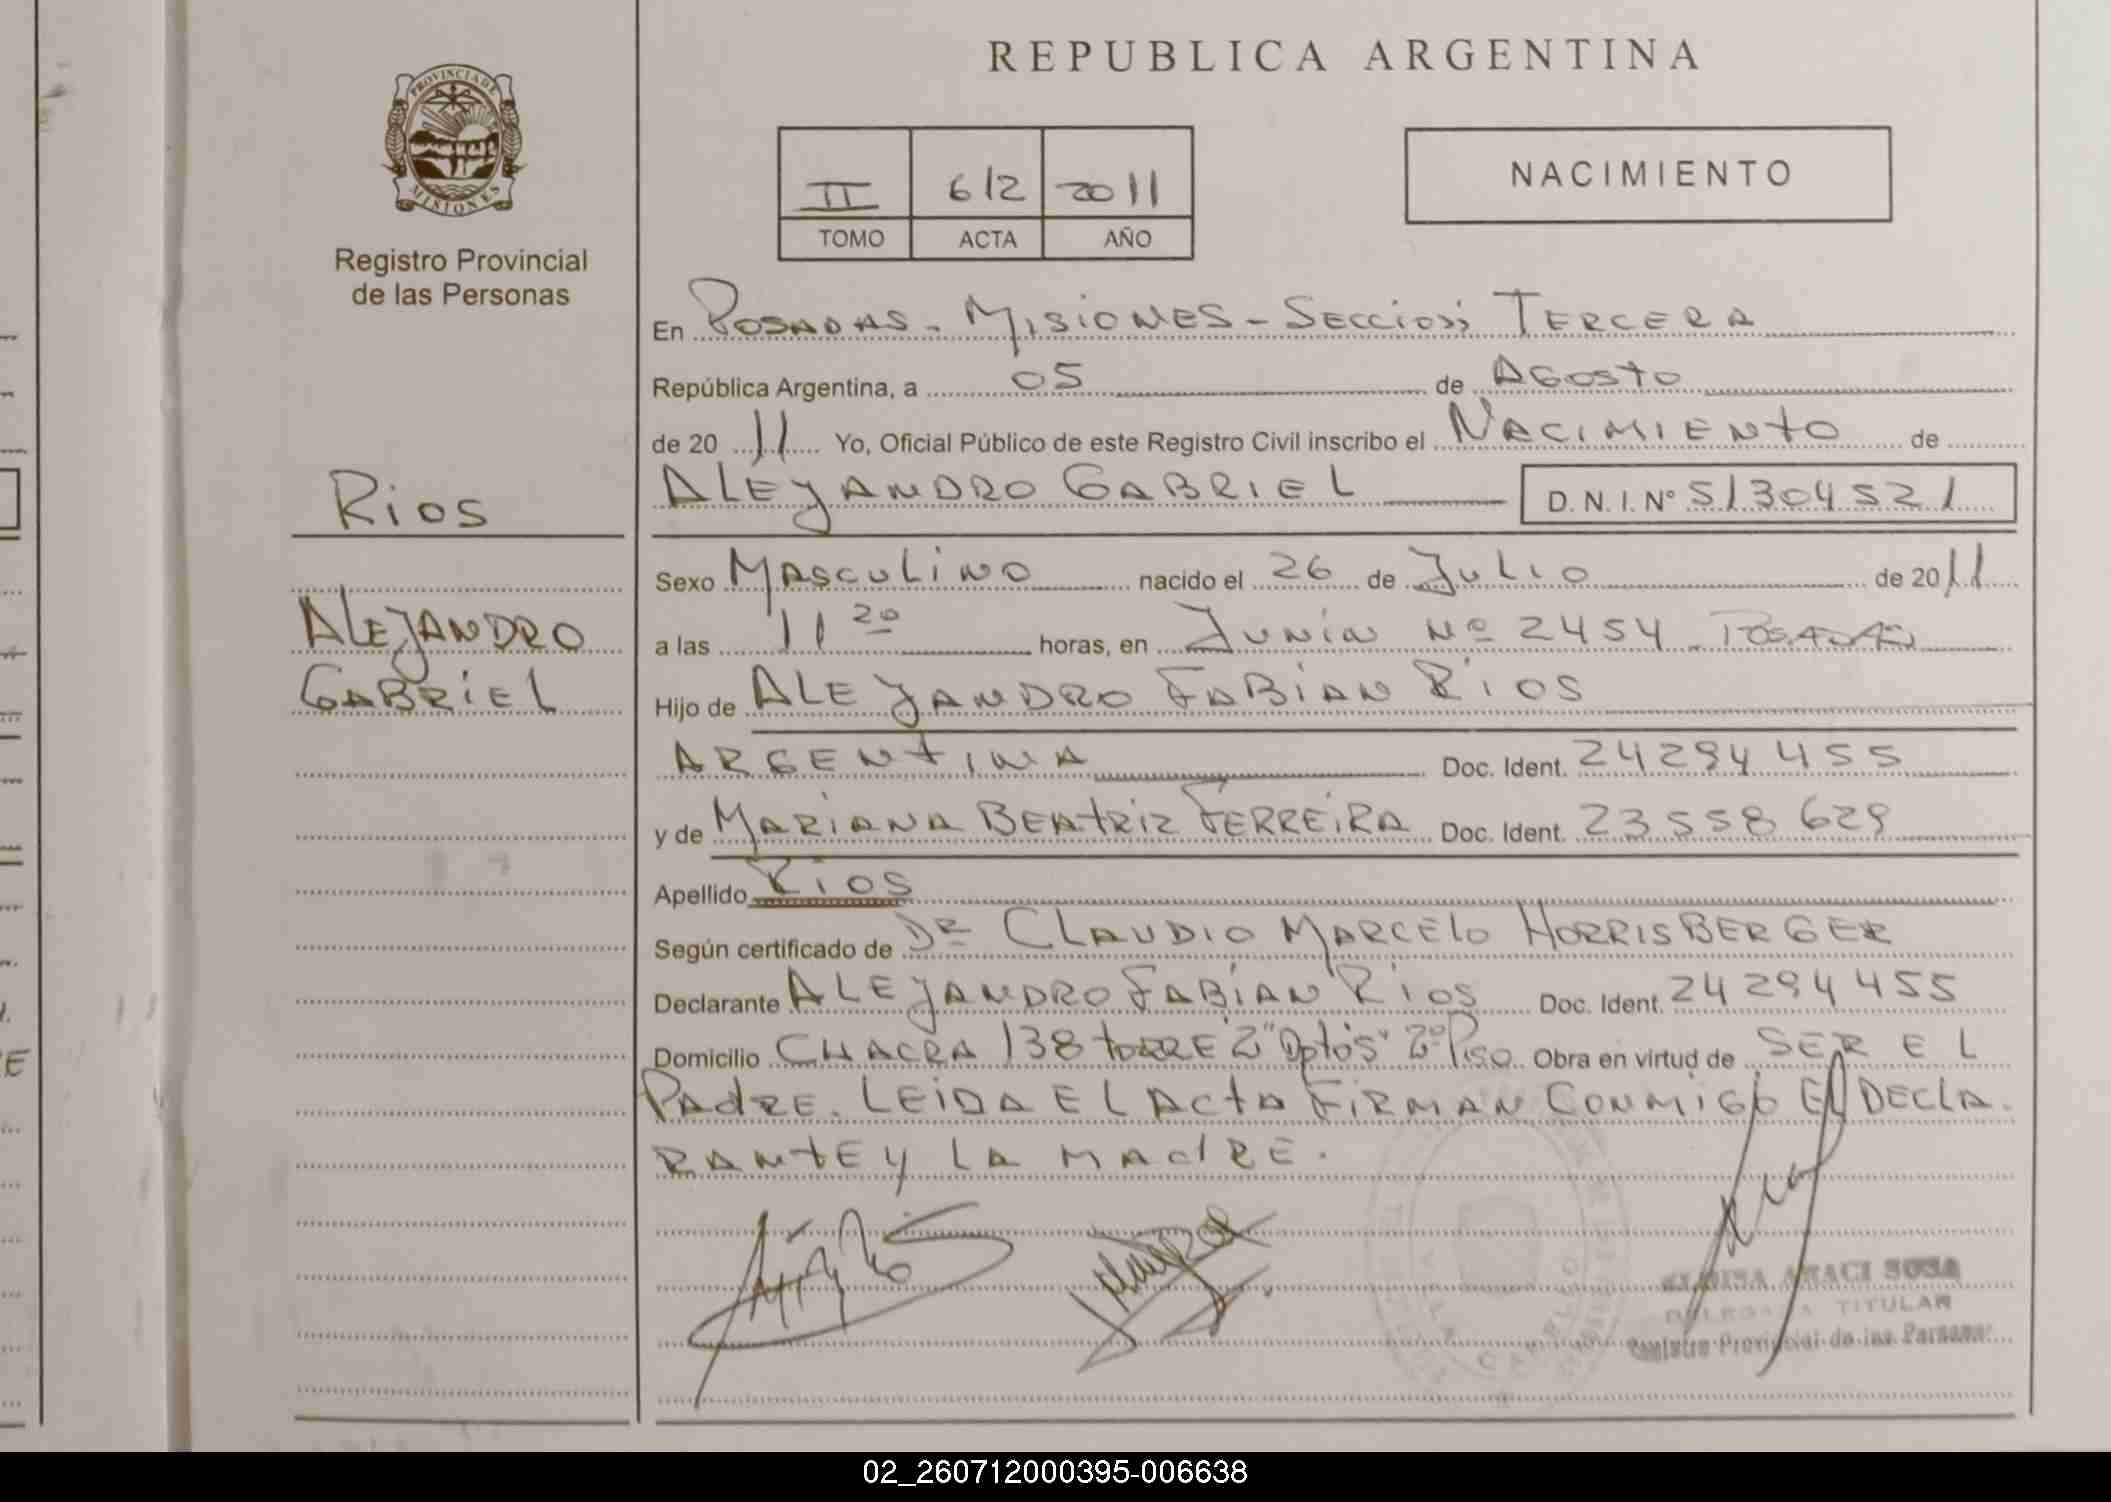 REPUBLICA ARGENTINA
PROVINCIA DE
MISIONES
Registro Provincial
de las Personas
II 612 2011
TOMO ACTA AÑO
NACIMIENTO
En POSADAS - MISIONES - SECCION TERCERA
República Argentina, a 05 de AGOSTO
de 20 11 Yo, Oficial Público de este Registro Civil inscribo el NACIMIENTO de
ALEJANDRO GABRIEL D.N.I. Nº 51304521
Rios
ALEJANDRO
GABRIEL
Sexo MASCULINO nacido el 26 de JULIO de 20 11
a las 11 20 horas, en JUNIN Nº 2454 - POSADAS
Hijo de ALEJANDRO FABIAN RIOS
ARGENTINA Doc. Ident. 24294455
y de MARIANA BEATRIZ FERREIRA Doc. Ident. 23558629
Apellido RIOS
Según certificado de DR CLAUDIO MARCELO HORRISBERGER
Declarante ALEJANDRO FABIAN RIOS Doc. Ident. 24294455
Domicilio CHACRA 138 TORRE 2 "Dpto 5" 2º Piso Obra en virtud de SER EL
PADRE. LEIDA EL ACTA FIRMAN CONMIGO EL DECLA
RANTE Y LA MADRE.
ARACI SOSA
DELEGADA TITULAR
Registro Provincial de las Personas
02_260712000395-006638